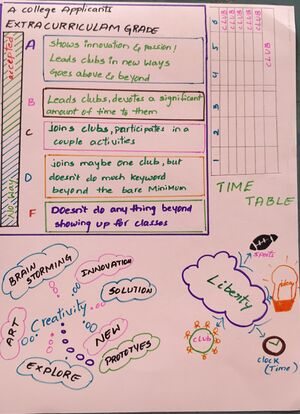 A college Applicants
EXTRACURRICULAM GRADE
accepted
No way
A
Shows innovation & passion!
Leads clubs in new ways
Goes above & beyond
B
Leads clubs, devotes a significant
amount of time to them
C
Joins clubs, participates in a
couple activities
D
joins maybe one club, but
doesn't do much keyword
beyond the bare Minimum
F
Doesn't do any thing beyond
showing up for classes
6
5
4
3
2
1
CLUB
CLUB
CLUB
CLUB
CLUB
TIME
TABLE
BRAIN
STORMING
INNOVATION
SOLUTION
Creativity
ART
NEW
PROTOTYES
EXPLORE
Liberty
Sports
idea
CLUB
Clock
(Time)